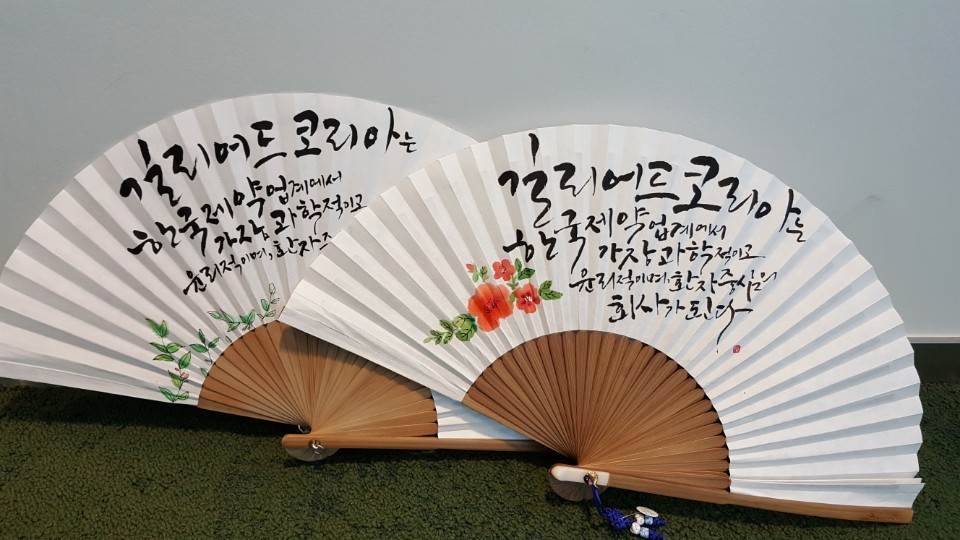 길리어드 코리아는
한국 제약업계에서
가장 과학적이고
윤리적이며, 환자
길리어드 코리아는
한국 제약업계에서
가장 과학적이고
윤리적이며, 환자중심의
회사가 된다